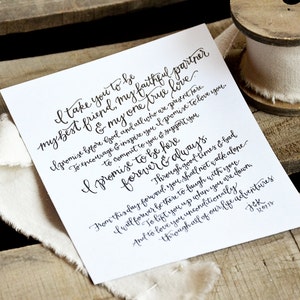 I take you to be
my best friend, my faithful partner
& my one true love
I promise before God and all who are present here
To encourage & inspire you. I promise to love you
to commit to you & support you
I promise to be here
forever & always
Through good times & bad
From this day forward you shall not walk alone
I will forever be there to laugh with you
To lift you up when you are down
And to love you unconditionally
through all of our life adventures